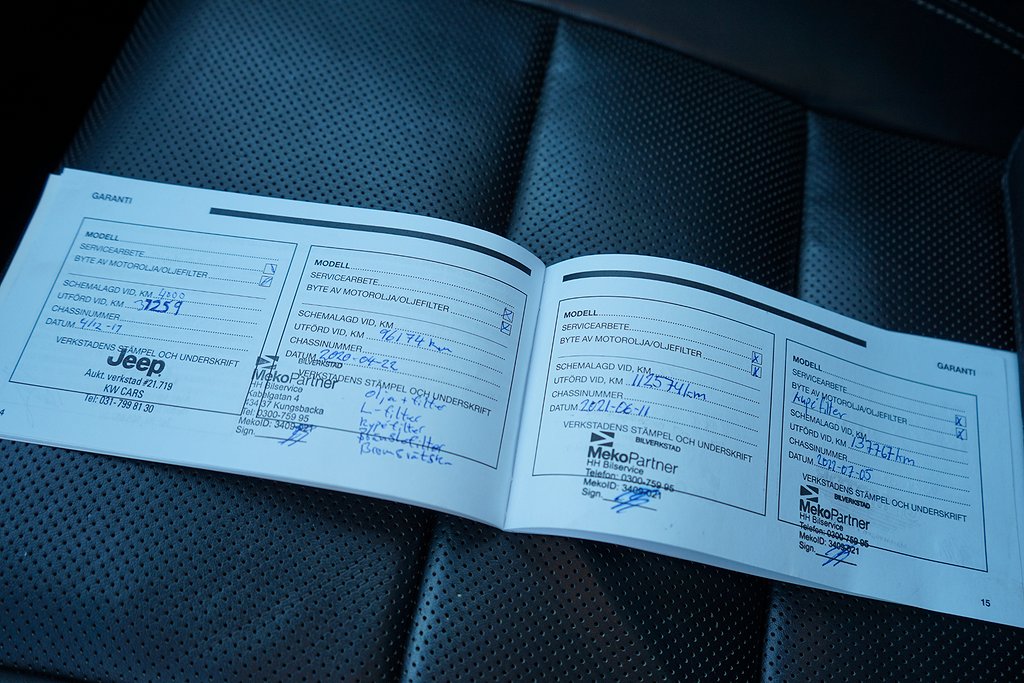 GARANTI
MODELL
SERVICEARBETE
BYTE AV MOTOROLJA/OLJEFILTER
SCHEMALAGD VID, KM 4000
UTFÖRD VID, KM 37259
CHASSINUMMER
DATUM 4/12-17
VERKSTADENS STÄMPEL OCH UNDERSKRIFT
Jeep
Aukt. verkstad #21.719
KW CARS
Tel: 031-799 81 30
MODELL
SERVICEARBETE
BYTE AV MOTOROLJA/OLJEFILTER
SCHEMALAGD VID, KM
UTFÖRD VID, KM 96174 km
CHASSINUMMER
DATUM 2020-04-22
VERKSTADENS STÄMPEL OCH UNDERSKRIFT
BILVERKSTAD
MekoPartner
HH Bilservice
Kabelgatan 4
434 37 Kungsbacka
Tel: 0300-759 95
MekoID: 3409021
Sign.
Olja + filter
L-filter
Kupefilter
Bränslefilter
Bromsvätska
MODELL
SERVICEARBETE
BYTE AV MOTOROLJA/OLJEFILTER
SCHEMALAGD VID, KM
UTFÖRD VID, KM 112574 km
CHASSINUMMER
DATUM 2021-06-11
VERKSTADENS STÄMPEL OCH UNDERSKRIFT
BILVERKSTAD
MekoPartner
HH Bilservice
Telefon: 0300-759 95
MekoID: 3409021
Sign.
GARANTI
MODELL
SERVICEARBETE
BYTE AV MOTOROLJA/OLJEFILTER
Kupefilter
SCHEMALAGD VID, KM
UTFÖRD VID, KM 137767 km
CHASSINUMMER
DATUM 2022-07-05
VERKSTADENS STÄMPEL OCH UNDERSKRIFT
BILVERKSTAD
MekoPartner
HH Bilservice
Telefon: 0300-759 95
MekoID: 3409021
Sign.
15